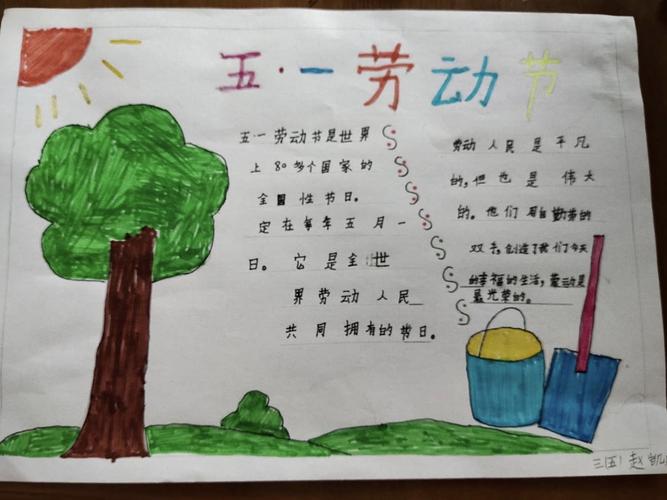 五·一劳动节
五·一劳动节是世界
上80多个国家的
全国性节日。
定在每年五月一
日。它是全世
界劳动人民
共同拥有的节日。
劳动人民是平凡
的,但也是伟大
的。他们用自勤劳的
双手,创造了我们今天
的幸福的生活,劳动是
最光荣的。
三(五)赵凯